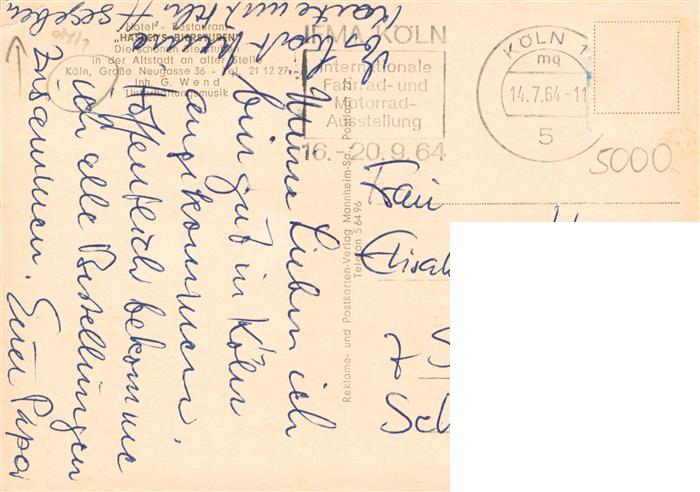 Hotel - Restaurant
in der Altstadt an alter Stelle
Köln, Große Neugasse 36 - Tel. 21 12 27
Inh. G. Wend
Unterhaltungsmusik
IFMA KÖLN
Internationale
Fahrrad- und
Motorrad-
Ausstellung
16.-20.9.64
KÖLN 1
mq
14.7.64-11
5
5000
Meine Lieben ich
bin gut in Köln
angekommen.
Hoffentlich bekomme
ich alle Bestellungen
zusammen. Euer Papa
Reklame- und Postkarten-Verlag Mannheim-Sa., Postfach 27
Telefon 5 64 96
Frau
Elisab
7 S
Sch